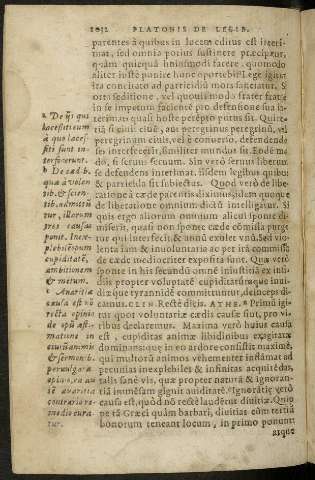 PLATONIS DE LEGIB.
parentes à quibus in lucem editus est interfi-
mat, sed omnia potius sustinere præcipiat,
quàm quicquā huiusmodi facere, quomodo
aliter iustè punire hunc oportebit? Lege igitur
ita concitato ad parricidiū mors sanciatur. Si
orta seditione, vel quouis modo frater fratrē
in se impetum facientē pro defensione sua in-
terimat, quasi hoste perēpto purus sit. Quin
etiā si ciuis ciuē, aut peregrinus peregrinū, vel
peregrinum ciuis, vel è conuerso, defendendo
se interfecerit, similiter mundus sit. Eodē mo-
dò, si seruus seruum. Sin verò seruus liberum
se defendens interimat, iisdem legibus quibus
& parricida sit subiectus. Quod verò de libe-
ratione à cæde parentis diximus, idem quoque
de liberatione omnium dictū intelligatur. Si
quis ergo aliorum omnium alicui sponte di-
miserit, quasi non sponte cæde cōmissa purge-
tur qui interfecit, & annū exulet vnū. Sed vio-
lenta iam & inuoluntaria ac per irā commissa
de cæde mediocriter exposita sunt. Quæ verò
sponte in his secundū omnē iniustitiā ex insi-
diis propter voluptatē cupiditatēque inui-
diāque tyrannidē committuntur, deinceps di-
camus. CLIN. Rectè dicis. ATHE. Primū igi-
tur quot voluntariæ cædis causæ sint, pro vi-
ribus declaremus. Maxima verò huius causa
est, cupiditas animæ libidinibus exagitatæ
dominans: quæ in eo ardore consistit maximè,
qui multorū animos vehementer inflamat ad
pecunias inexplebiles & infinitas acquirēdas,
talis sanè vis, quæ propter naturā & ignoran-
tiā immēsam gignit auiditatē. Ignorātiæ verò
causa est, quòd nō rectè laudētur diuitiæ. Quip-
pe tā Græci quàm barbari, diuitias cùm tertiū
bonorum teneant locum, in primo ponunt
atque
De iis qui
lacessiti eum
à quo laces-
siti sunt in-
terfecerunt.
De cæd b.
quæ à volen-
tib. & scien-
tib. admittū
tur, illorum
tres causas
ponit. Inex-
plebilē pecun.
cupiditatē,
ambitionem
& metum.
Auaritiæ
causa est nō
recta opinio
de opū æsti-
matione in
ciuiū animis
& sermonib.
peruulgata
opinio, ea au
iē auaritia
contrario re-
medio cura-
tur.